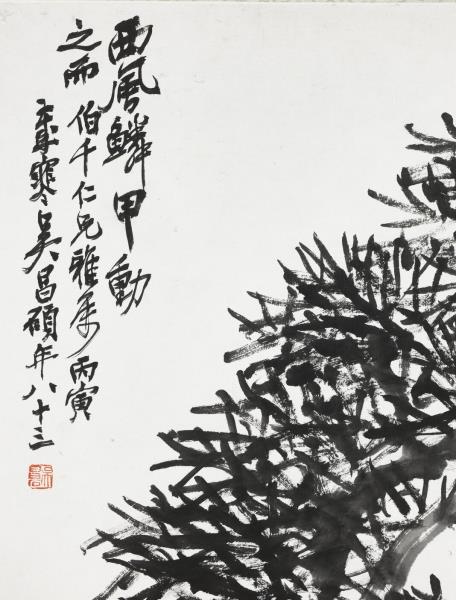 西風鱗甲動
之而伯千仁兄雅属丙寅
歲寒吳昌碩年八十三